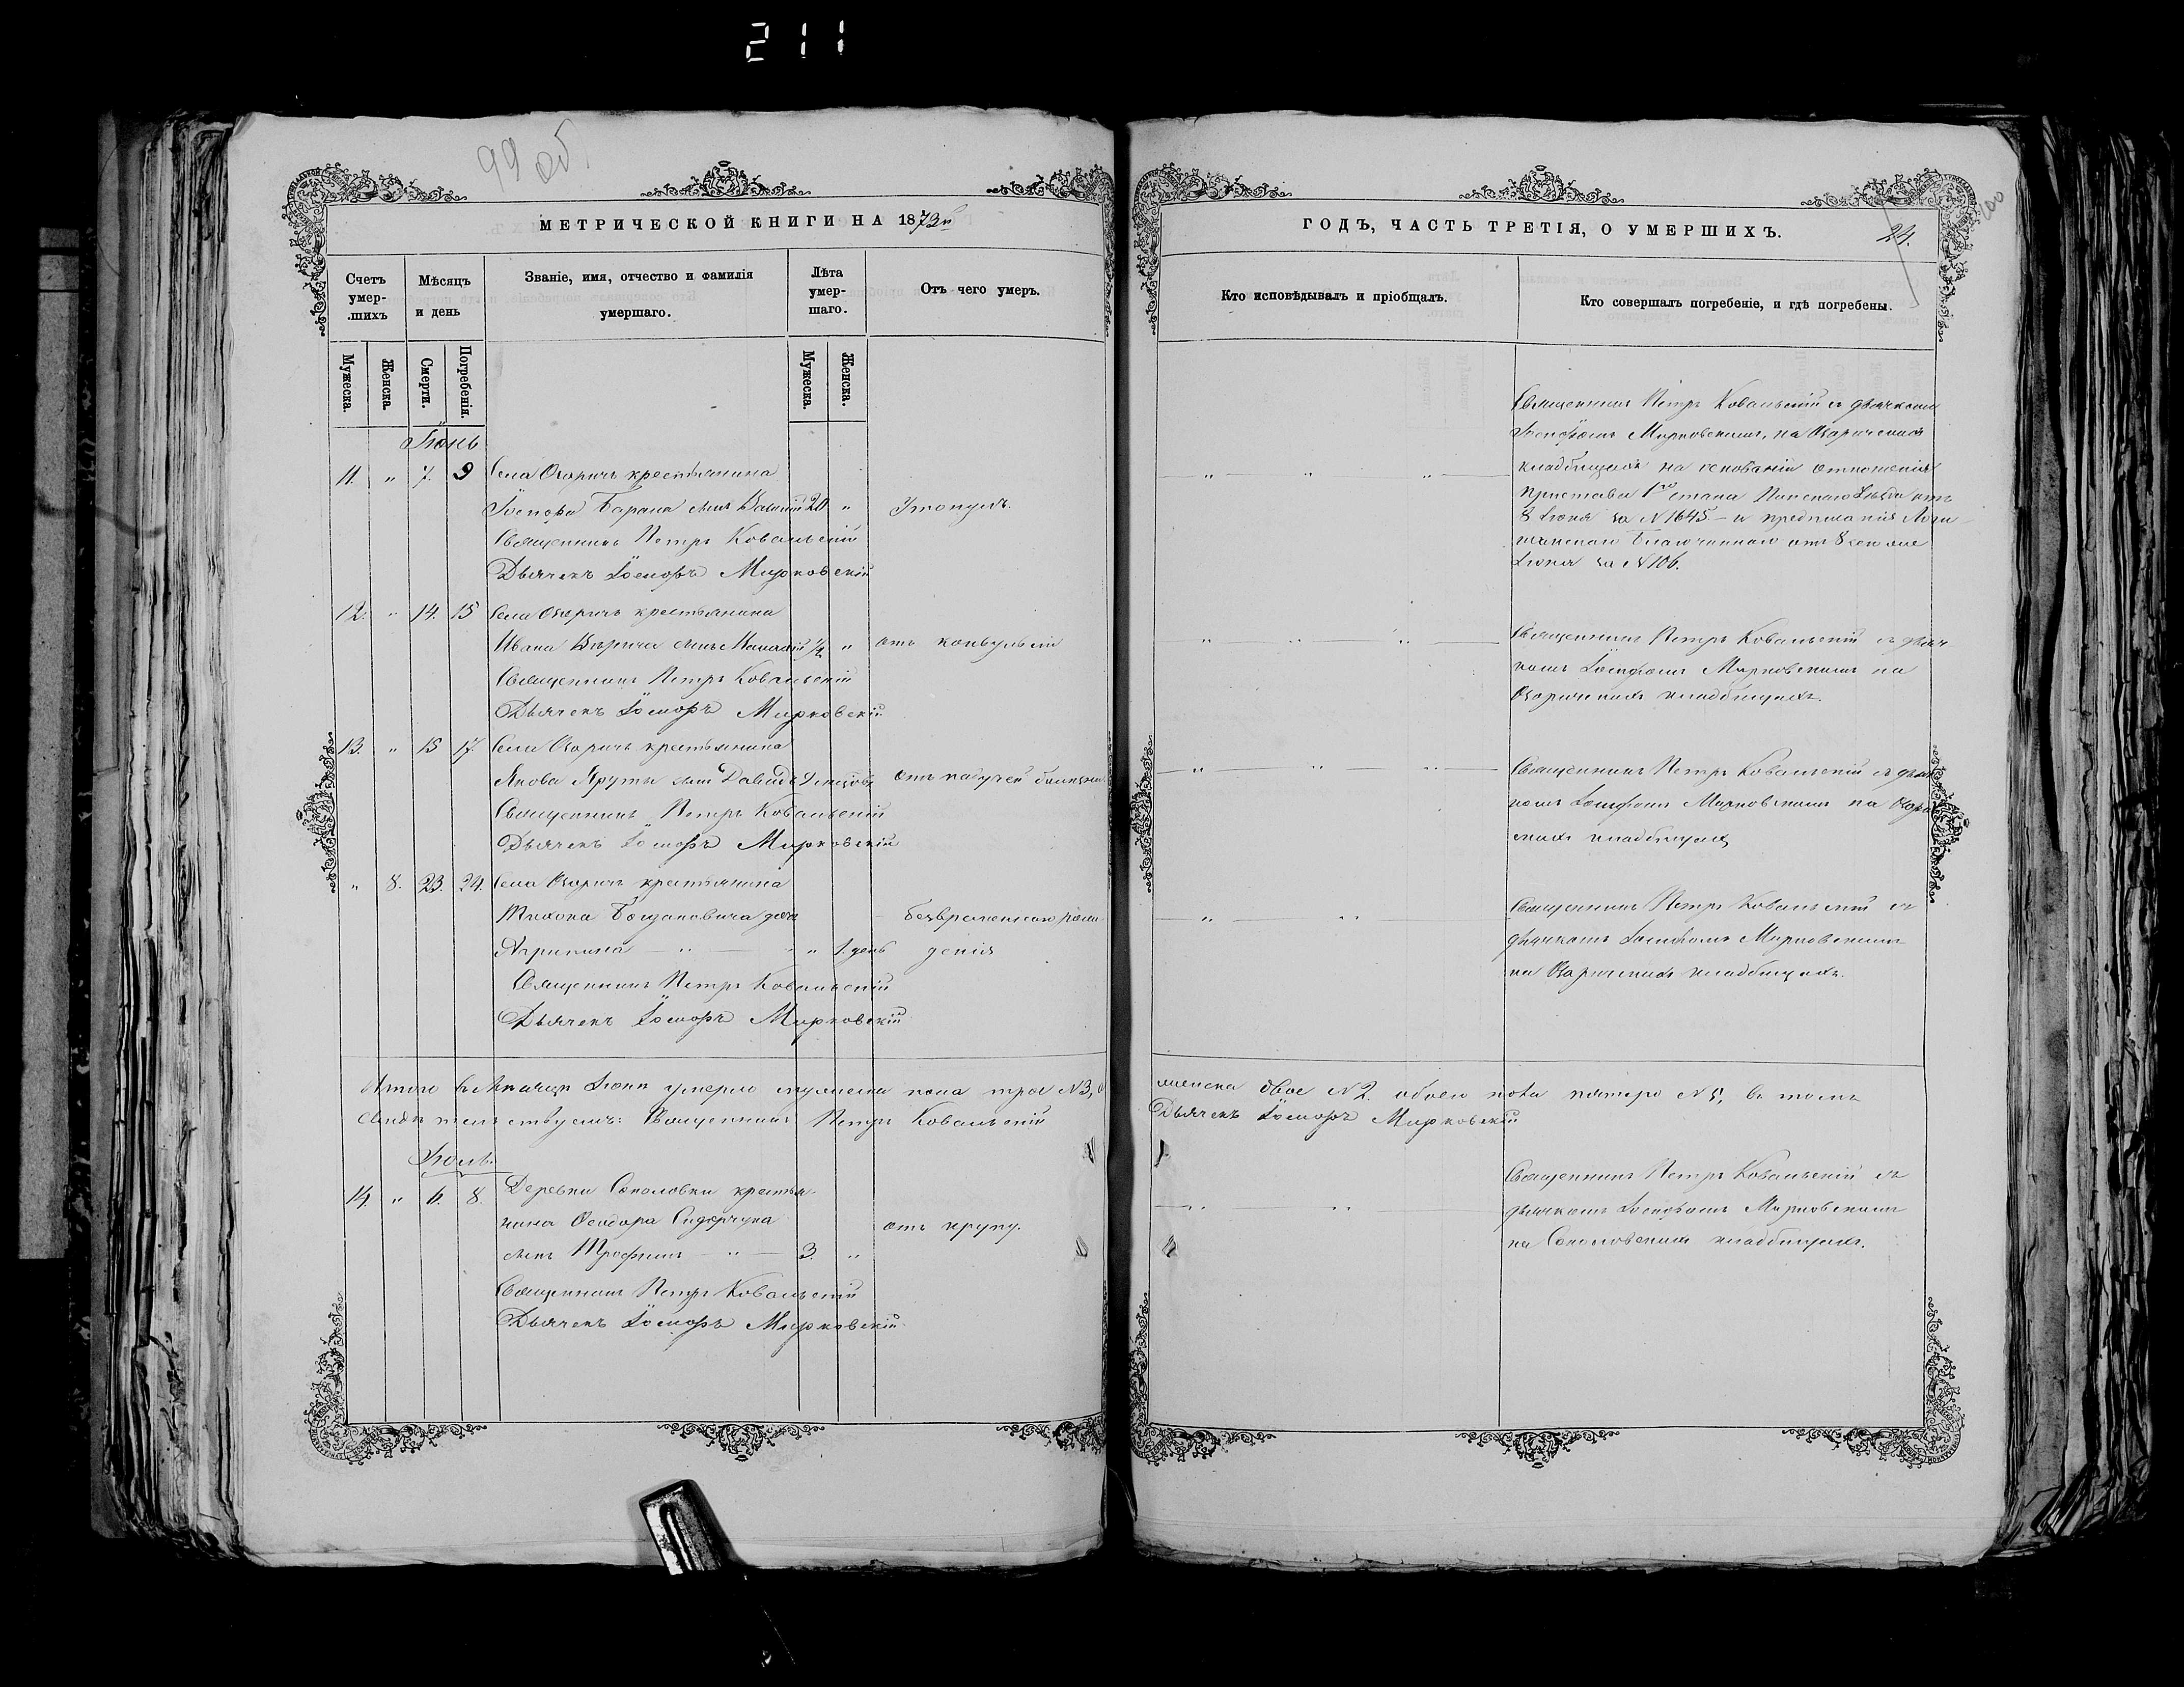 211
99 об.
МЕТРИЧЕСКОЙ КНИГИ НА 1873й
Счетъ умер-шихъ
Мѣсяцъ и день
Званіе, имя, отчество и фамилія умершаго.
Лѣта умер-шаго.
Отъ чего умеръ.
Мужеска.
Женска.
Смерти.
Погребенія.
Мужеска.
Женска.
Іюнь
11. " 7. 9 Села Озаричъ крестьянина
Іосифа Барана сынъ 20 " Утонулъ.
Священникъ Петръ Ковальскій
Дьячекъ Іосифъ Мирковскій
12. " 14. 15 Села Озаричъ крестьянина
Ивана сынъ 1/2 " отъ конвульсіи
Священникъ Петръ Ковальскій
Дьячекъ Іосифъ Мирковскій
13. " 15 17. Села Озаричъ крестьянина
Якова Яруты сынъ Давидъ отъ падучей болезни
Священникъ Петръ Ковальскій
Дьячекъ Іосифъ Мирковскій
" 8. 23. 24. Села Озаричъ крестьянина
Тихона Богдановича дочь безвременного рож-
Агрипина " " 1. день денія
Священникъ Петръ Ковальскій
Дьячекъ Іосифъ Мирковскій
Итого въ Іюнѣ умерло мужеска пола трое N 3,
Священникъ Петръ Ковальскій
Іюль.
14. " 6. 8. Деревни Соколовки крестья-
нина Ѳеодора Сидорчука отъ крупу.
сынъ Трофимъ " 3. "
Священникъ Петръ Ковальскій
Дьячекъ Іосифъ Мирковскій
ГОДЪ, ЧАСТЬ ТРЕТІЯ, О УМЕРШИХЪ.
24.
100
Кто исповѣдывалъ и пріобщалъ.
Кто совершалъ погребеніе, и гдѣ погребены.
Священникъ Петръ Ковальскій съ дьячкомъ
Іосифомъ Мирковскимъ, на Озарическомъ
кладбищѣ на основаніи отношенія
Пристава 1го стана Пинскаго уѣзда отъ
8 Іюня за N 1645 – и предписанія Логи-
шинскаго Благочиннаго отъ 8
Іюня за N 106.
Священникъ Петръ Ковальскій съ дьяч-
комъ Іосифомъ Мирковскимъ на
Озарическихъ кладбищахъ.
Священникъ Петръ Ковальскій съ дьяч-
комъ Іосифомъ Мирковскимъ на
скихъ кладбищахъ
Священникъ Петръ Ковальскій съ
дьячкомъ Іосифомъ Мирковскимъ
на Озарическихъ кладбищахъ.
женска двое N 2. обоего пола пятеро N 5, въ томъ
Дьячекъ Іосифъ Мирковскій
Священникъ Петръ Ковальскій съ
дьячкомъ Іосифомъ Мирковскимъ
на Соколовскихъ кладбищахъ.